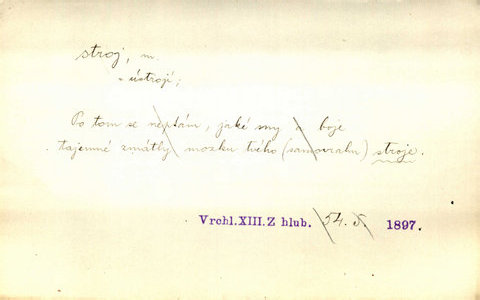 stroj, m.
= ústrojí;
Po tom se neptám, jaké sny a boje
tajemné zmátly mozku tvého (samovrahu) stroje.
Vrchl.XIII.Z hlub. 54. 1897.